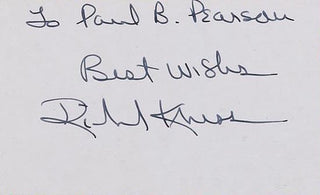 To Paul B. Pearson
Best Wishes
Richard